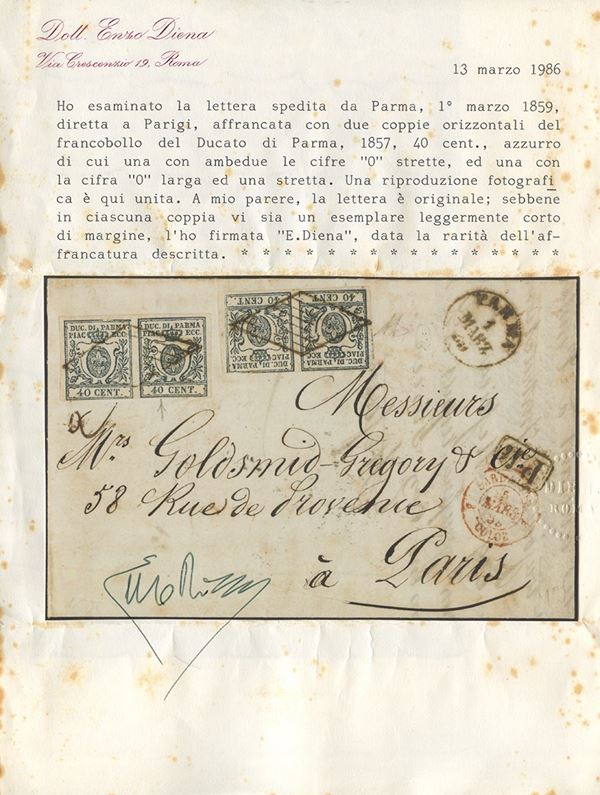 Dott. Enzo Diena
Via Crescenzio 19, Roma
13 marzo 1986
Ho esaminato la lettera spedita da Parma, 1° marzo 1859,
diretta a Parigi, affrancata con due coppie orizzontali del
francobollo del Ducato di Parma, 1857, 40 cent., azzurro
di cui una con ambedue le cifre "0" strette, ed una con
la cifra "0" larga ed una stretta. Una riproduzione fotografi
ca è qui unita. A mio parere, la lettera è originale; sebbene
in ciascuna coppia vi sia un esemplare leggermente corto
di margine, l'ho firmata "E.Diena", data la rarità dell'af-
francatura descritta. * * * * * * * * * * * * * * * *
DUC. DI PARMA
PIAC. ECC.
40 CENT.
DUC. DI PARMA
PIAC. ECC.
40 CENT.
40 CENT.
DUC. DI PARMA
PIAC. ECC.
40 CENT.
DUC. DI PARMA
PIAC. ECC.
PARMA
1
MARZ.
Messieurs
Mrs Goldsmid-Gregory & Cie
58 Rue de Provence
à Paris
P.D.
MARS
CULOZ